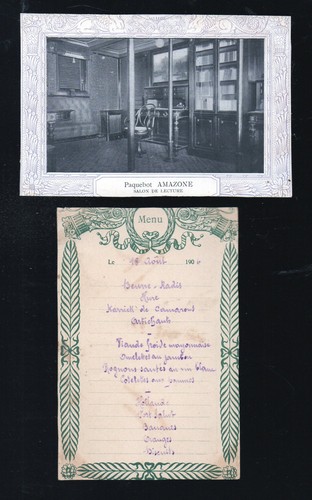 Paquebot AMAZONE
SALON DE LECTURE
Menu
Le 18 Août 190
Beurre - Radis
de
Artichaut
Viande froide mayonnaise
Omelettes au jambon
Rognons sautés au vin blanc
Cotelettes aux pommes
Port Salut
Bananes
Oranges
Biscuits